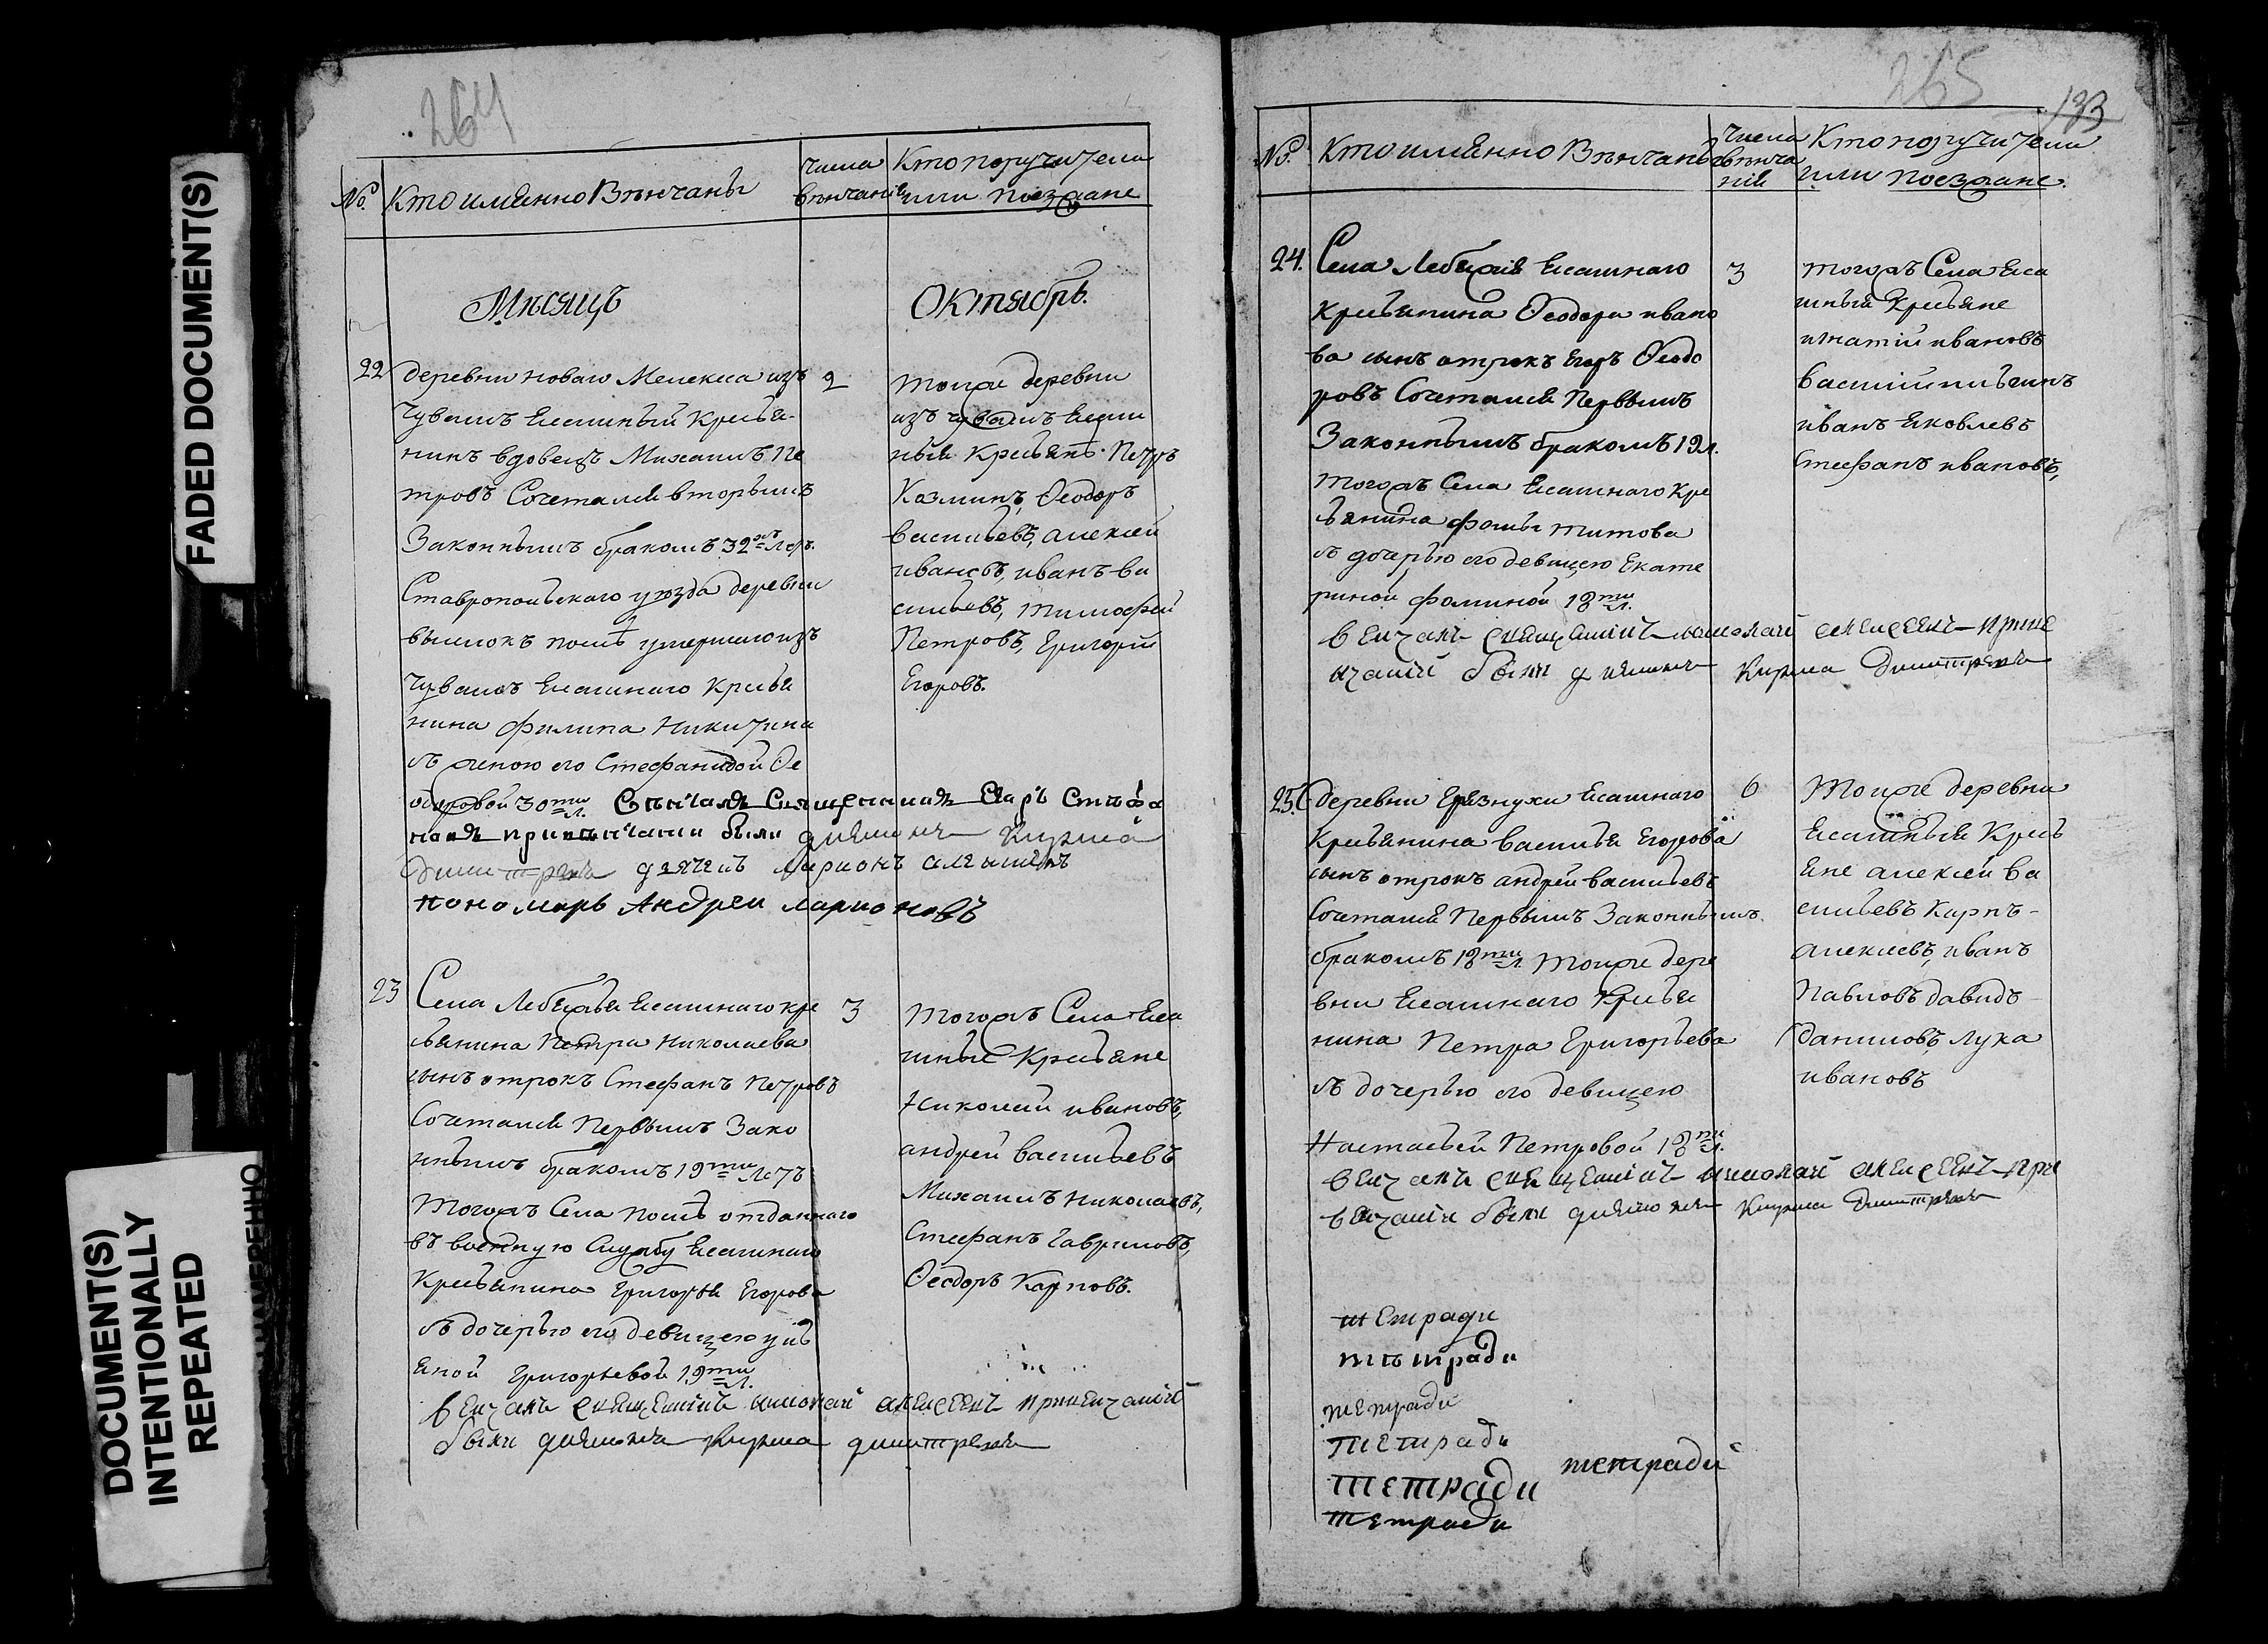 FADED DOCUMENT(S)
DOCUMENT(S)
INTENTIONALLY
REPEATED
264
№.
Кто имянно Вѣнчаны
Числа
вѣнчанія
Кто поручители
или поезжане
Мѣсяцъ
Октябрь.
22
деревни новаго Мелекеса изъ
чувашъ Ясашный Кресья-
нинъ вдовецъ Михаилъ Пе
тровъ Сочетался вторымъ
Законнымъ бракомъ 32 летъ.
Ставропольскаго уезда деревни
выселокъ послѣ умершаго изъ
чувашъ Ясашнаго Кресья
нина Филипа Никитина
съ женою его Стефанидой Ѳе
одоровой 30ти л. Свѣнчалъ Священникъ Егоръ Стефа
новъ при венчании были дьяконъ Кирила
Димитревъ дьячекъ Ларионъ
пономарь Андреи ларионовъ
2
тоежъ деревни
изъ чувашъ Ясаш
ныя Кресьянѣ Петръ
Казминъ, Ѳеодоръ
васильевъ, алексей
ивановъ, иванъ ва
сильевъ, тимофей
Петровъ, Григорий
Егоровъ.
23
Села Лебяжья Ясашнаго кре
сьянина Петра Николаева
сынъ отрокъ Стефанъ Петровъ
Сочетался Первымъ Зако
ннымъ бракомъ 19ти летъ
тогожъ Села послѣ отданнаго
въ военную Службу Ясашнаго
Кресьянина Григорья Егорова
съ дочерью его девицею улѣ
яной Григорьевой 19ти л.
венчалъ священникъ николай алексеевъ привенчаніи
были дьяконъ Кирила димитревъ
3
тогожъ Села Яса
шные Кресьяне
Николай ивановъ,
андрей васильевъ
Михаилъ Николаевъ,
Стефанъ Гавриловъ,
Ѳеодоръ Карповъ.
265
133
№.
Кто имянно Вѣнчаны
Числа
вѣнча
нія
Кто поручители
или поезжане.
24.
Села Лебяжья Ясашнаго
кресьянина Ѳеодора ивано
ва сынъ отрокъ Егоръ Ѳеодо
ровъ Сочетался Первымъ
Законнымъ бракомъ 19 л.
тогожъ Села Ясашнаго кре
сьянина фомы титова
съ дочерью его девицею Екате
риной фоминой 18ти л.
венчалъ священникъ николай алексеевъ приве
нчаніи были дьяконъ Кирила Димитревъ
3
тогожъ Села Яса
шныя Кресьяне
игнатій ивановъ
василій ильинъ
иванъ Яковлевъ
Стефанъ ивановъ,
25.
деревни Грязнухи Ясашнаго
кресьянина василья Егорова
сынъ отрокъ андрей васильевъ
Сочетался Первымъ Законнымъ
бракомъ 18ти л. тоежъ дере
вни Ясашнаго Кресья
нина Петра Григорьева
съ дочерью его девицею
Настасьей Петровой 18ти л.
венчалъ священникъ николай алексеевъ при
венчаніи были дьяконъ Кирила Димитревъ
6
тоежъ деревни
Ясашныя Кресь
яне алексей ва
сильевъ Карпъ-
алексеевъ, иванъ
Павловъ давидъ-
даниловъ, лука
ивановъ
тетради
тетради
тетради
тетради
тетради
тетради
тетради